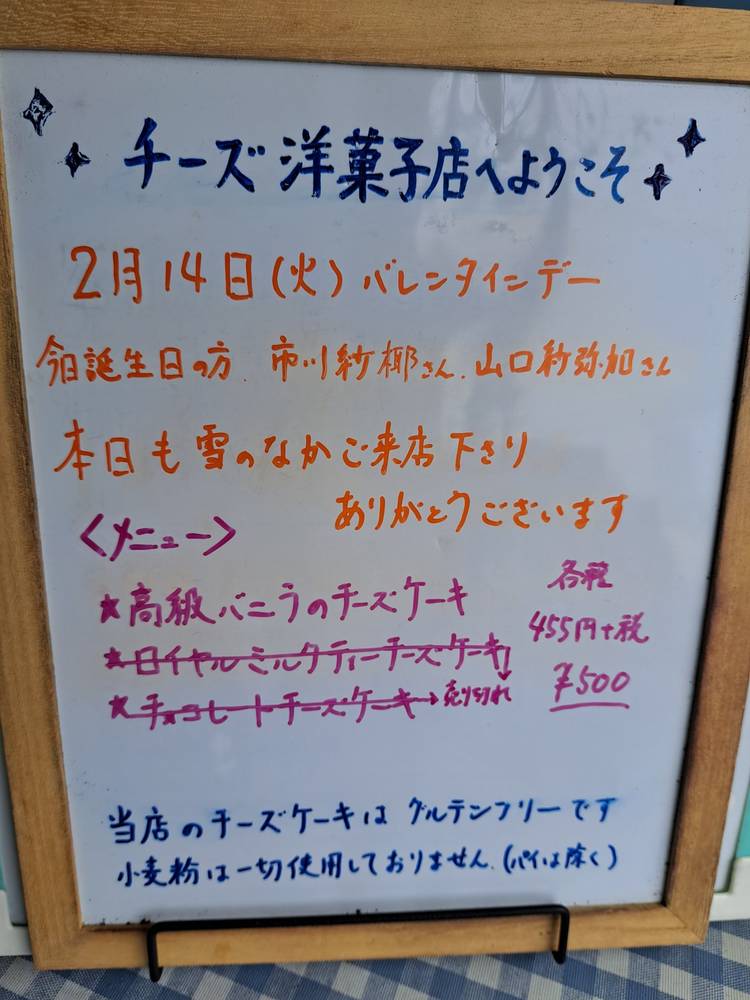 チーズ洋菓子店へようこそ
2月14日(火)バレンタインデー
今日誕生日の方、市川紗椰さん、山口紗弥加さん
本日も雪のなかご来店下さり
ありがとうございます
<メニュー>
★高級バニラのチーズケーキ
★ロイヤルミルクティーチーズケーキ
★チョコレートチーズケーキ→売り切れ
各種
455円+税
¥500
当店のチーズケーキはグルテンフリーです
小麦粉は一切使用しておりません。(パイは除く)